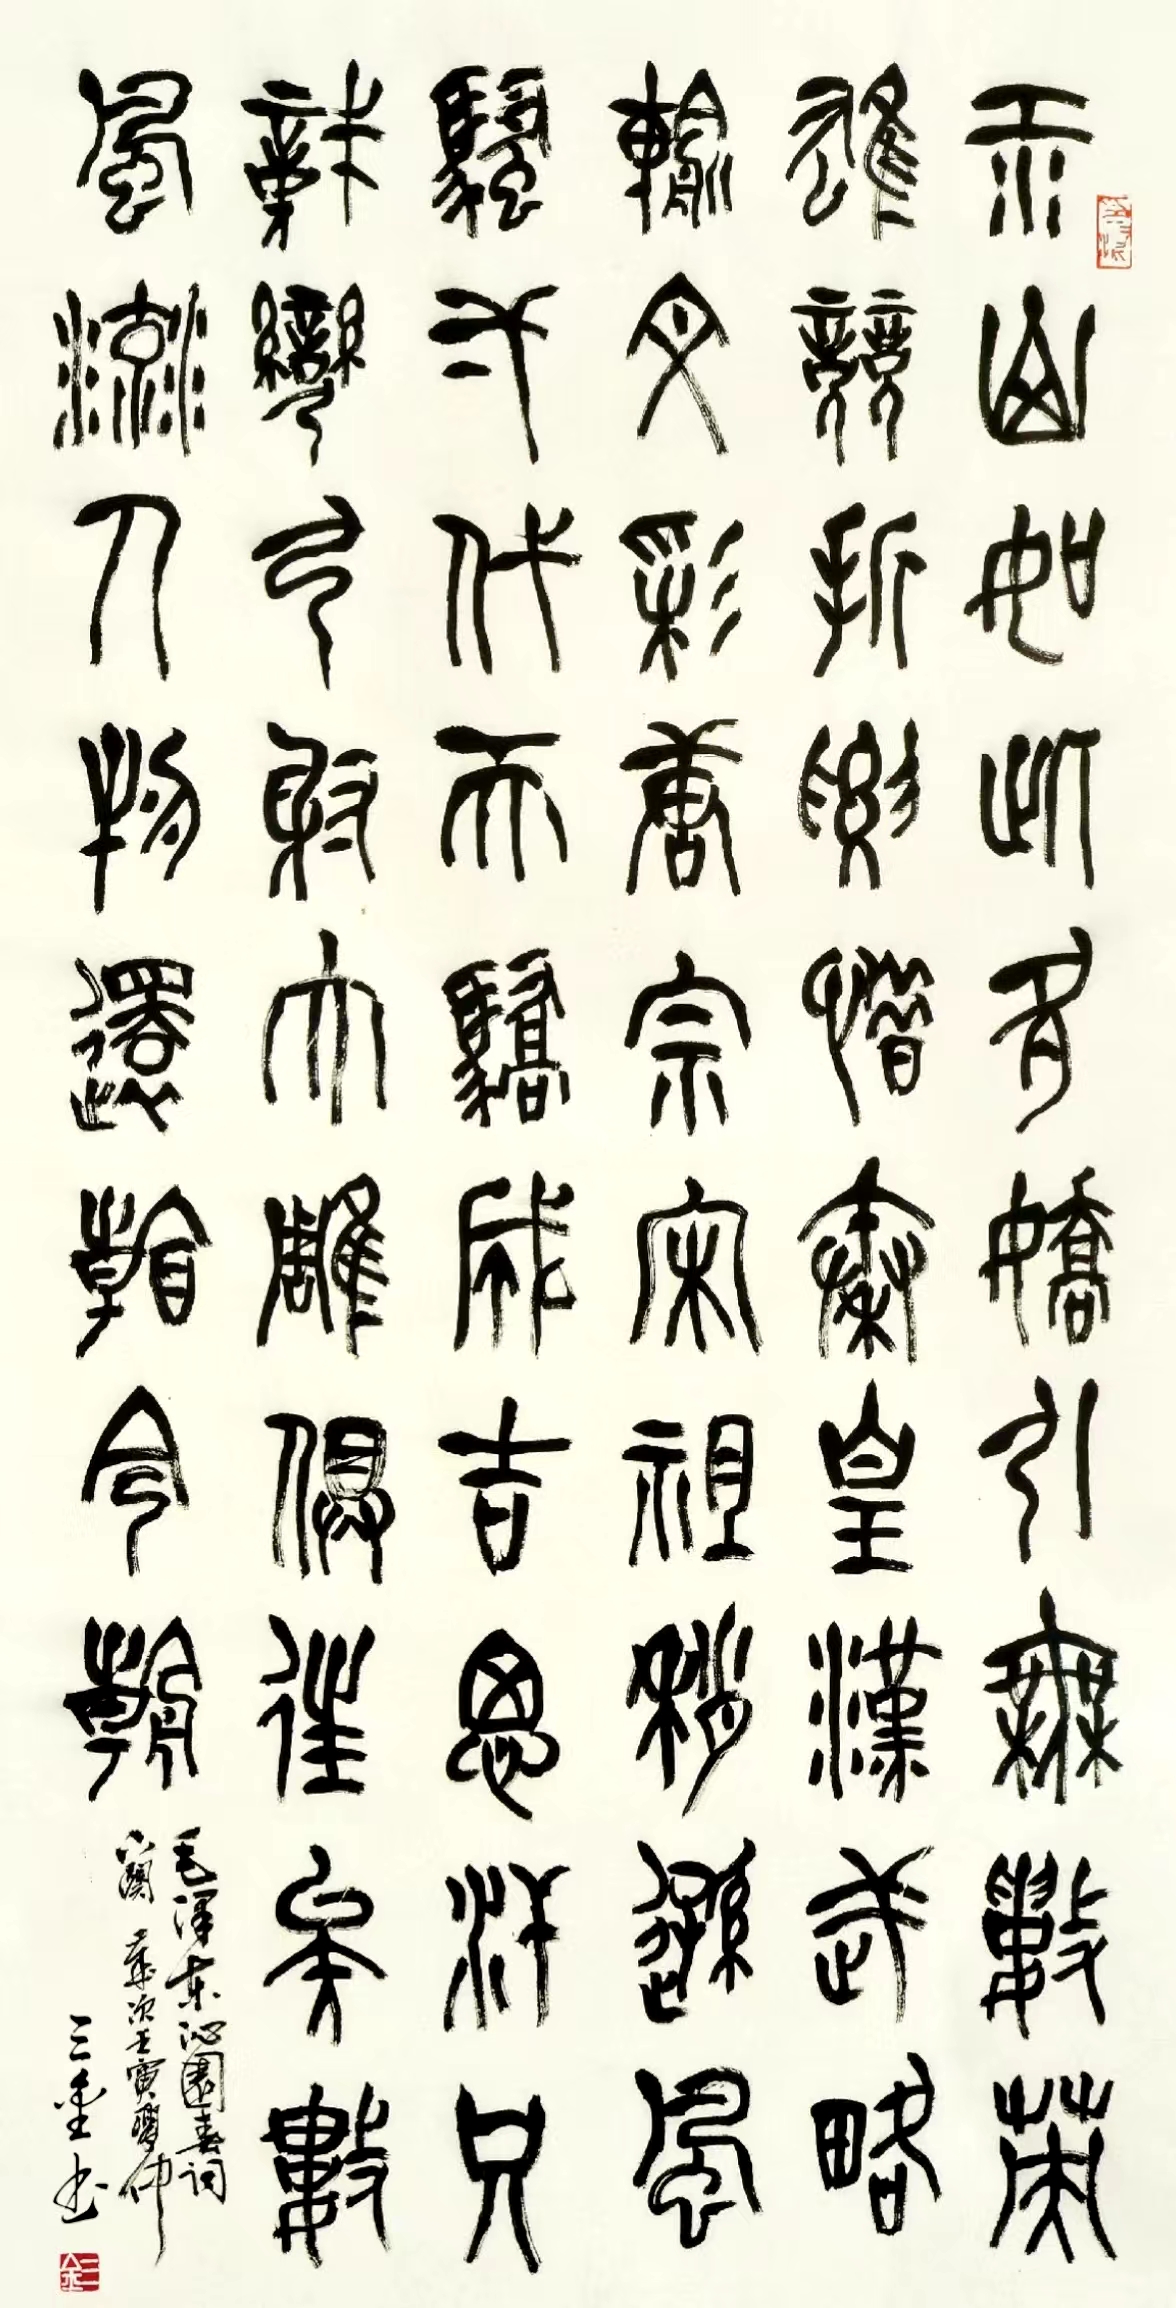 江山如此多嬌引無數英
雄競折腰惜秦皇漢武略
輸文彩唐宗宋祖稍遜風
騷弌代天驕成吉思汗只
識彎弓射大雕俱往矣數
風流人物還看今朝
毛澤東沁園春詞
闋 歲次壬寅仲
三金书
三金